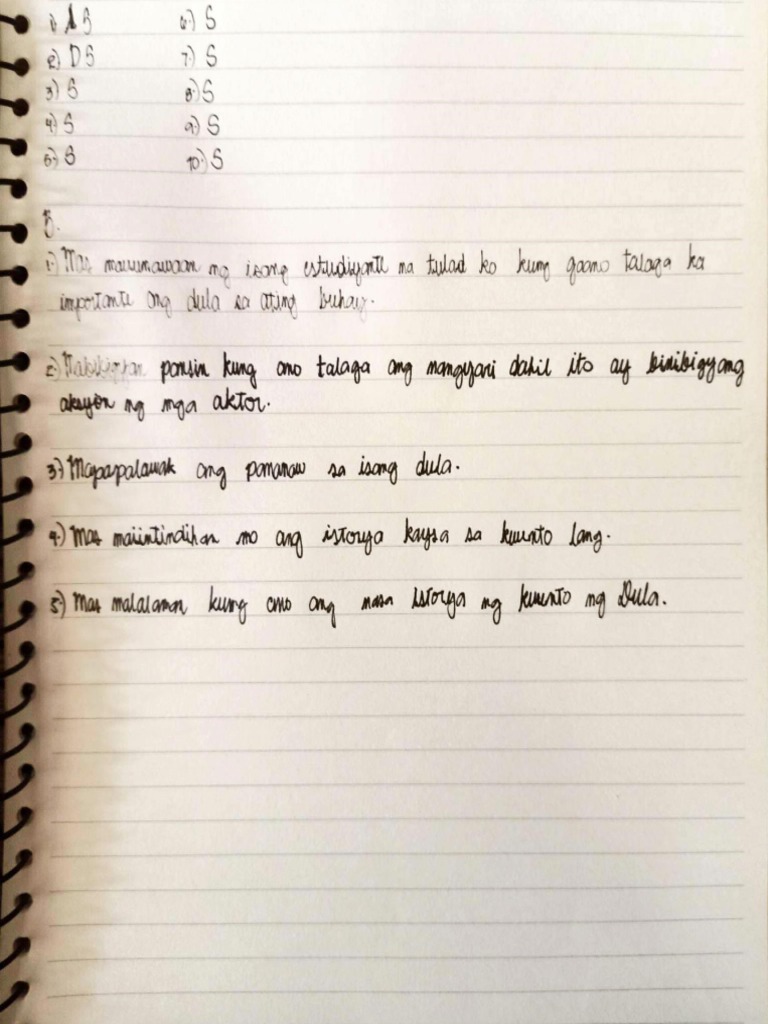 1.) AS 6.) S
2.) DS 7.) S
3.) S 8.) S
4.) S 9.) S
5.) S 10.) S
B.
1.) Mas mauunawaan ng isang estudiyante na tulad ko kung gaano talaga ka
importante ang dula sa ating buhay.
2.) Mabibigyan pansin kung ano talaga ang nangyari dahil ito ay binibigyang
aksyon ng mga aktor.
3.) Mapapalawak ang pananaw sa isang dula.
4.) Mas maiintindihan mo ang istorya kaysa sa kwento lang.
5.) Mas malalaman kung ano ang nasa istorya ng kwento ng Dula.